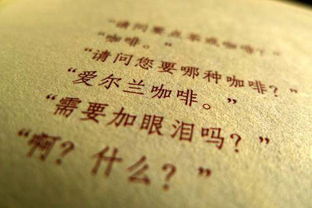 “请问要点茶或咖啡吗？”
“咖啡。”
“请问您要哪种咖啡？”
“爱尔兰咖啡。”
“需要加眼泪吗？”
“啊？什么？”